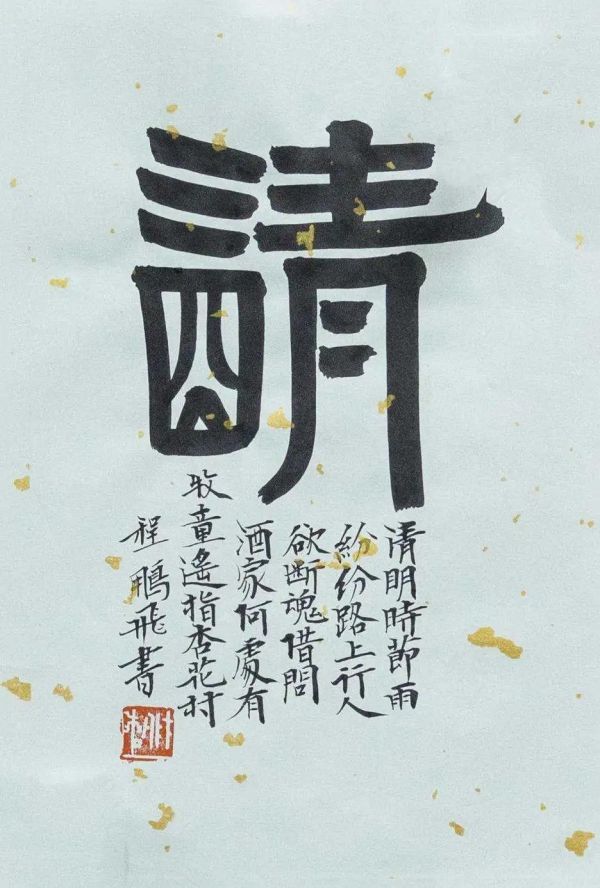 清明
清明時節雨
紛份路上行人
欲断魂借問
酒家何處有
牧童遙指杏花村
程鵬飛書